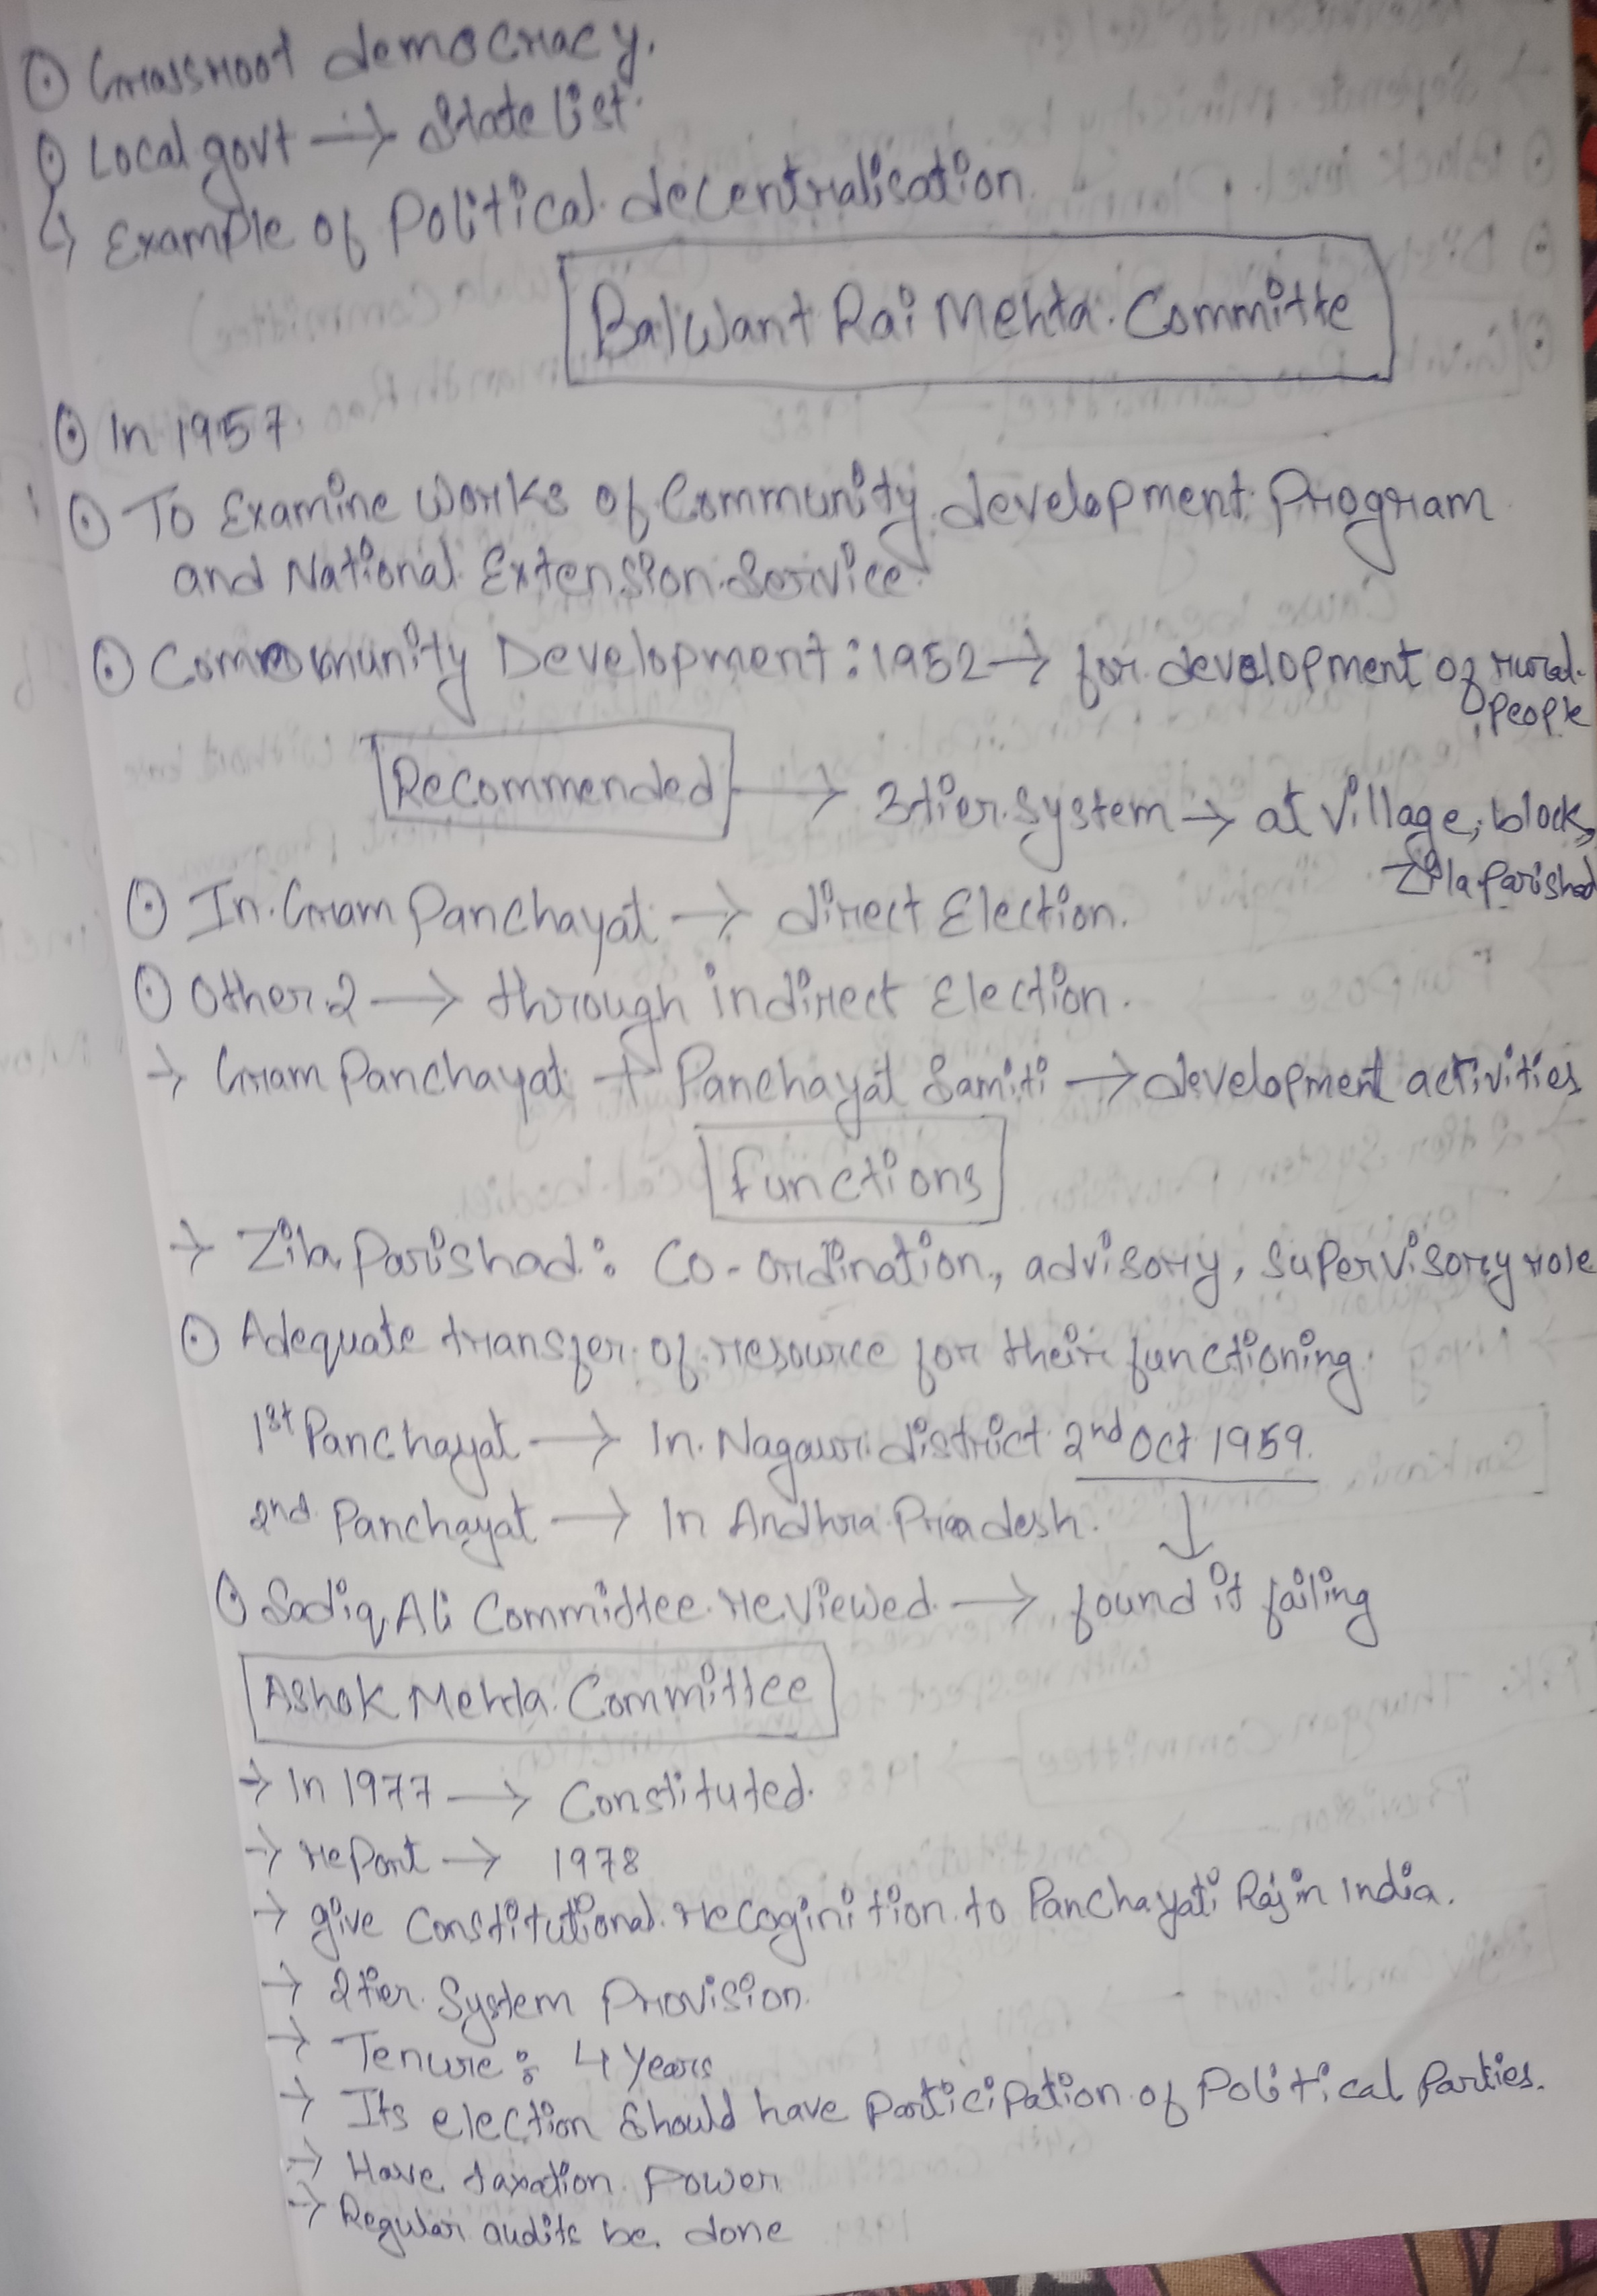 ⊙ Grassroot democracy.
⊙ Local govt → State list.
↳ Example of Political decentralisation
Balwant Rai Mehta Committe
⊙ In 1957.
⊙ To Examine works of Community development Program
and National Extension Service.
⊙ Community Development : 1952 → for development of rural
people
Recommended → 3 tier system → at village, block,
Zila Parishad
⊙ In Gram Panchayat → direct Election.
⊙ Other 2 → through indirect Election.
→ Gram Panchayat + Panchayat Samiti → development activities
Functions
→ Zila Parishad : Co-ordination, advisory, supervisory role
⊙ Adequate transfer of resource for their functioning.
1st Panchayat → In Nagaur district 2nd Oct 1959.
2nd Panchayat → In Andhra Pradesh. ↓
⊙ Sadiq Ali Committee reviewed → found it failing
Ashok Mehta Committee
→ In 1977 → Constituted.
→ report → 1978
→ give Constitutional recoginition to Panchayati Raj in India.
→ 2 tier System Provision.
→ Tenure : 4 years
→ Its election should have participation of Political Parties.
→ Have taxation Power
→ Regular audits be done